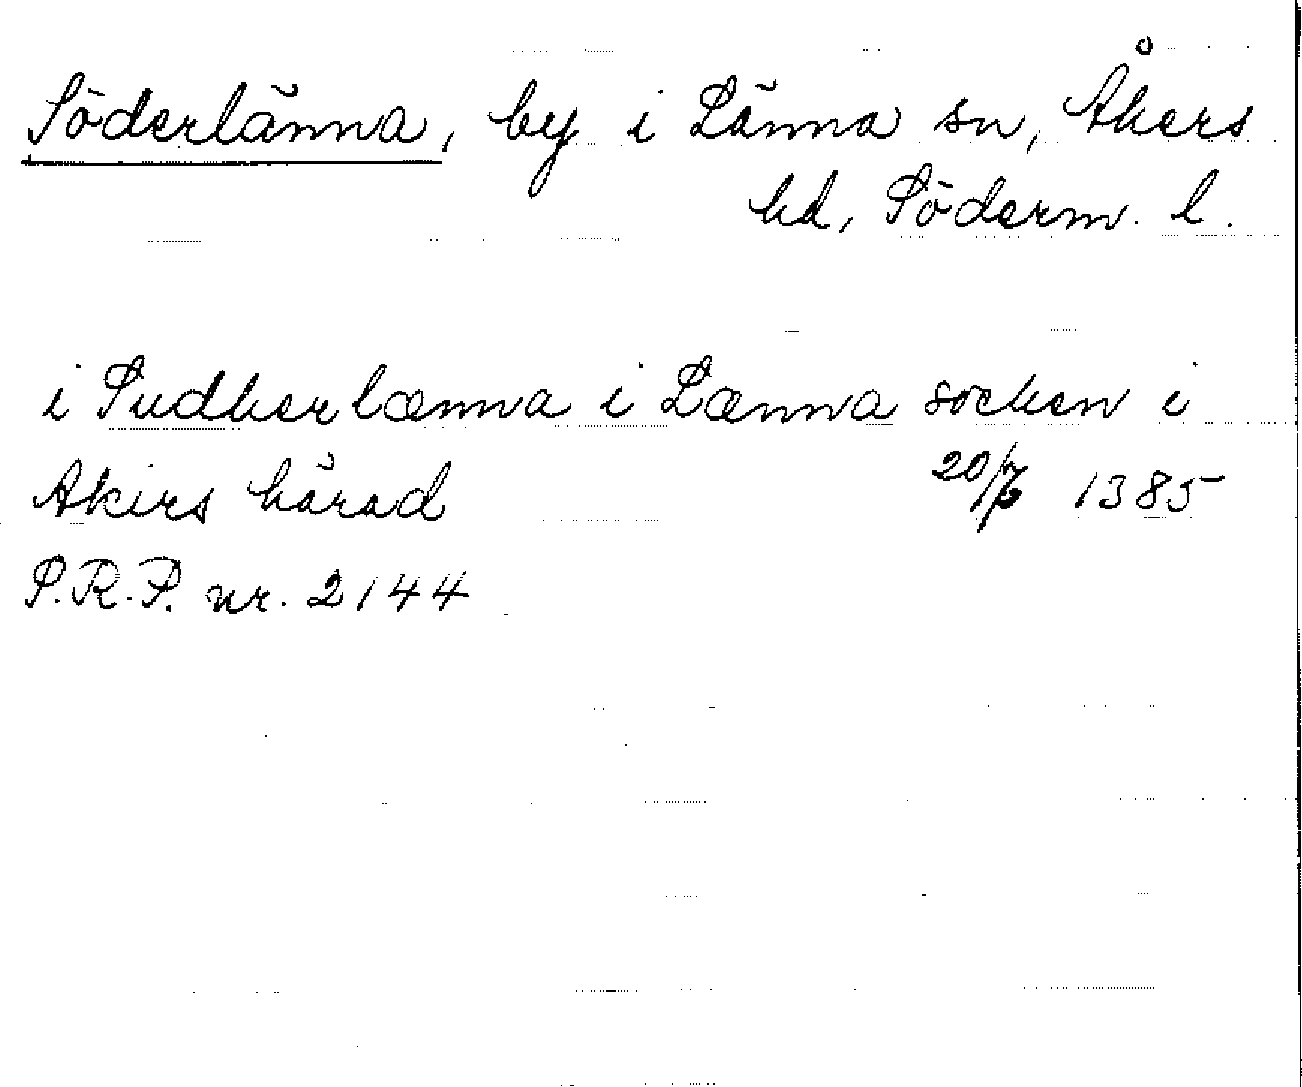 Söderlänna, by i Länna sn, Åkers
hd, Söderm. l.
i Sudherlænna i Lænna socken i
Akirs härad 1385
S.R.P. nr. 2144